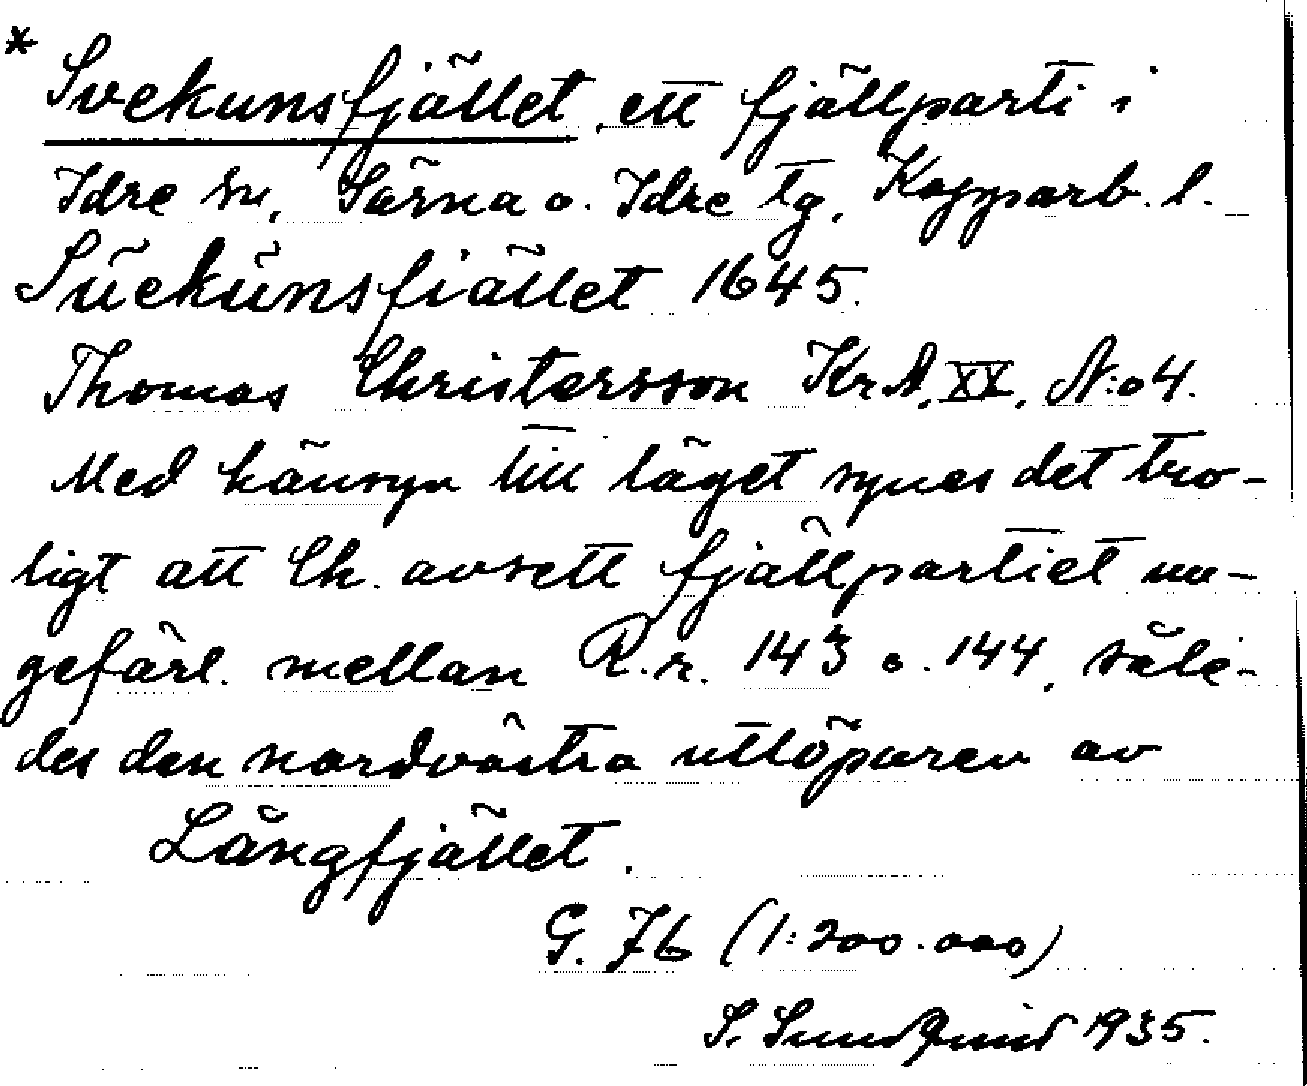 * Svekunsfjället, ett fjällparti i
Idre sn, Särna o. Idre tg, Kopparb. l.
Suekunsfiället 1645.
Thomas Christersson Kr A, XX, N:o 4.
Med hänsyn till läget synes det tro-
ligt att Ch. avsett fjällpartiet un-
gefärl. mellan R.r. 143 o. 144, såle-
des den nordvästra utlöparen av
Långfjället.
G. 76 (1:200.000)
S. Sundquist 1935.